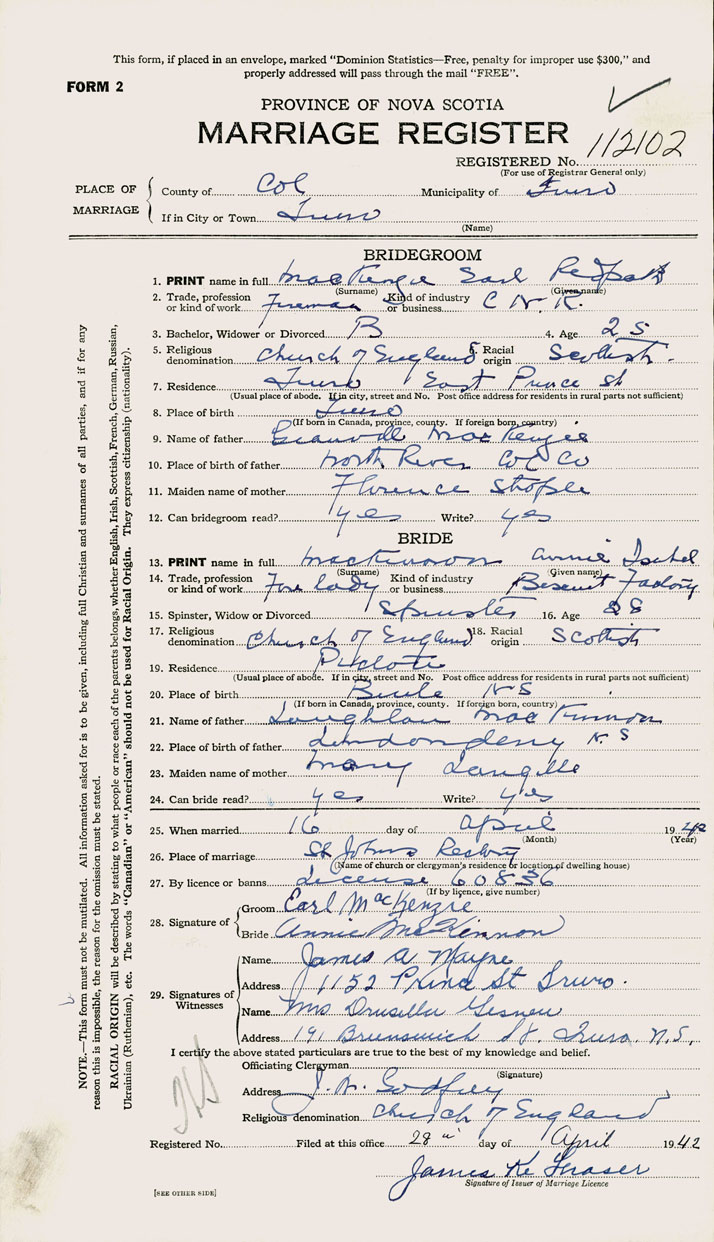 This form, if placed in an envelope, marked "Dominion Statistics—Free, penalty for improper use $300," and
properly addressed will pass through the mail "FREE".
FORM 2
PROVINCE OF NOVA SCOTIA
MARRIAGE REGISTER
REGISTERED No. 112102
(For use of Registrar General only)
PLACE OF MARRIAGE
County of Col Municipality of Truro
If in City or Town Truro
(Name)
BRIDEGROOM
1. PRINT name in full MacKenzie Earl Redpath
(Surname) (Given name)
2. Trade, profession or kind of work Fireman Kind of industry or business C N. R.
3. Bachelor, Widower or Divorced B 4. Age 25
5. Religious denomination Church of England 6. Racial origin Scottish.
7. Residence Truro East Prince St
(Usual place of abode. If in city, street and No. Post office address for residents in rural parts not sufficient)
8. Place of birth Truro
(If born in Canada, province, county. If foreign born, country)
9. Name of father MacKenzie
10. Place of birth of father North River Col Co
11. Maiden name of mother Florence
12. Can bridegroom read? yes Write? yes
BRIDE
13. PRINT name in full MacKinnon Annie Isabel
(Surname) (Given name)
14. Trade, profession or kind of work Fore lady Kind of industry or business Biscuit Factory
15. Spinster, Widow or Divorced Spinster 16. Age 28
17. Religious denomination Church of England 18. Racial origin Scottish
19. Residence
(Usual place of abode. If in city, street and No. Post office address for residents in rural parts not sufficient)
20. Place of birth NS
(If born in Canada, province, county. If foreign born, country)
21. Name of father Loughlan MacKinnon
22. Place of birth of father Londonderry N. S
23. Maiden name of mother Mary Langille
24. Can bride read? yes Write? yes
25. When married 16 day of April 1942
(Month) (Year)
26. Place of marriage St Johns Rectory
(Name of church or clergyman's residence or location of dwelling house)
27. By licence or banns License 60836
(If by licence, give number)
28. Signature of
Groom Earl MacKenzie
Bride Annie McKinnon
29. Signatures of Witnesses
Name James A Mayne
Address 1152 Prince St Truro.
Name Mrs Drusilla Gesner
Address 191 Brunswick St. Truro. N.S.
I certify the above stated particulars are true to the best of my knowledge and belief.
Officiating Clergyman J. W. Godfrey
(Signature)
Address
Religious denomination Church of England
Registered No. Filed at this office 28 day of April 1942
James K. Fraser
Signature of Issuer of Marriage Licence
[SEE OTHER SIDE]
NOTE.—This form must not be mutilated. All information asked for is to be given, including full Christian and surnames of all parties, and if for any
reason this is impossible, the reason for the omission must be stated.
RACIAL ORIGIN will be described by stating to what people or race each of the parents belongs, whether English, Irish, Scottish, French, German, Russian,
Ukrainian (Ruthenian), etc. The words "Canadian" or "American" should not be used for Racial Origin. They express citizenship (nationality).